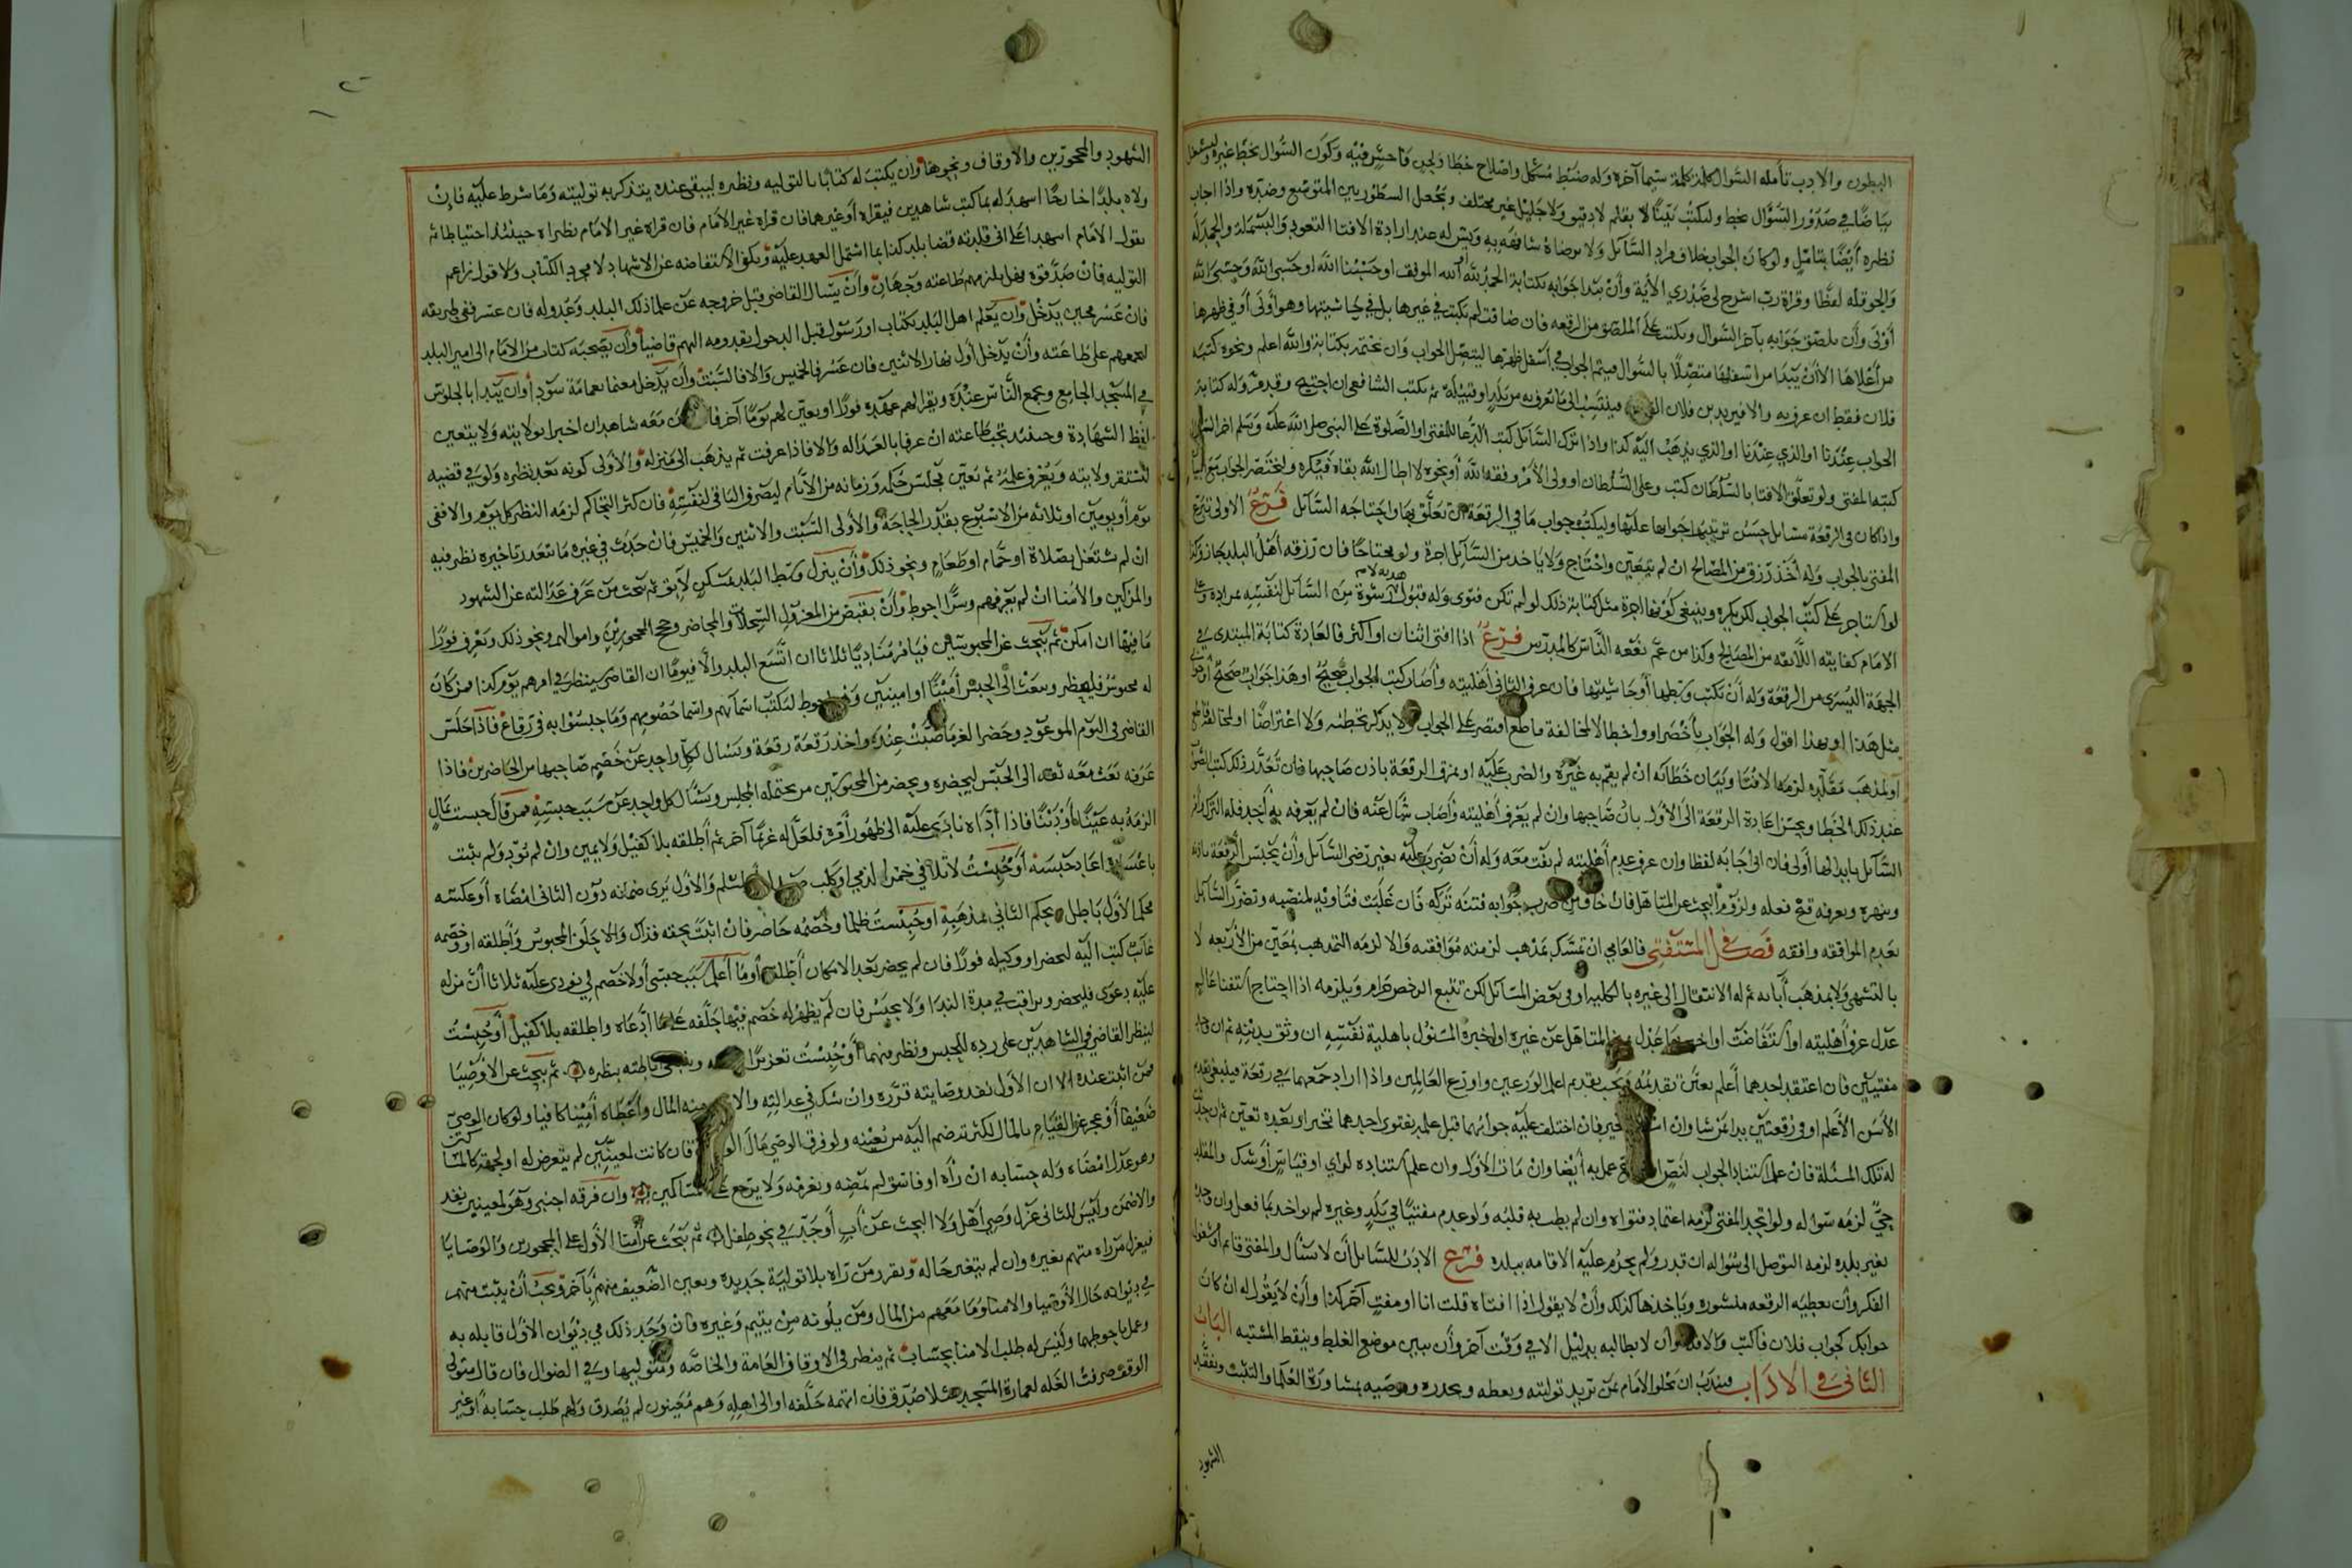 البطون والادب تأمله السؤال كلمة كلمة سيما آخره وله ضبط مشكل واصلاح خطا ولحن فاحش فيه وكون السؤال بخط غيره وليشغل
بياضا في صدور السؤال بخط وليكتب بينا لا بقلم لا دقيق ولا جليل غير مختلف ويجعل السطور بين المتوسع وضده واذا اجاب
نظره ايضا بتأمل ولو كان الجواب خلاف مراد السائل ولا يرضاه شافهه به ويسن له عند ارادة الافتا التعوذ والبسملة والحمدلة
والحوقله لفظا وقراة رب اشرح لي صدري الأية وأن يبدا جوابه بكتابة الحمد لله الله الموفق او حسبنا الله او حسبي الله وحسبي الله
أولى وأن يلصق جوابه بآخر السؤال ويكتب على الملصق من الرقعه فان ضاقت لم يكتب في غيرها بل في حاشيتها وهو أولى أو في ظهرها
من أعلاها الا أن يبدا من اسفلها متصلا بالسؤال فيتم الجواب في أسفل ظهرها ليتصل الجواب وان يختمه بكتابة والله اعلم ونحوه كتبه
فلان فقط ان عرف به والا فيزيد بن فلان فينتسب الى ما يعرف به من بلد او قبيلة ثم يكتب الشافعي ان احتيج وله كتابة
الجواب عندنا او الذي عندنا او الذي يذهب اليه كذا واذا ترك السائل كتب الدعا للمفتي او الصلوة على النبي صلى الله عليه وسلم اخر السؤال
كتبه المفتي ولو تعلق الافتا بالسلطان كتب وعلى السلطان او ولى الأمر وفقه الله أو نحوه لا اطال الله بقاه فيكره وليختصر الجواب
واذا كان في الرقعة مسائل حسن ترتيبها جوابها عليها وليكتب جواب ما في الرقعة ان تعلق بها واحتاجه السائل فرع الاولى تبرع
المفتي بالجواب وله أخذ رزق من المصالح ان لم يتعين واحتاج ولا ياخذ من السائل اجرة ولو محتاجا فان رزقه أهل البلد جاز وكذا
لو استاجر على كتب الجواب لكن يكره وينبغي كونها اجرة مثل كتابة ذلك لو لم تكن فتوى وله قبول هدية لا رشوة من السائل لنفسه بمراده وعلى
الامام كفايته اللائقه من المصالح وكذا من عم نفعه الناس كالمدرس فرع اذا افتى اثنان او اكثر فالعادة كتابة المبتدى في
الجهة اليسرى من الرقعة وله أن يكتب وسطها أو حاشيتها فان عرف الثاني أهليته وأصاب كتب الجواب صحيح او هذا جواب صحيح
مثل هذا او بهذا اقول وله الجواب بأخصر او واخطا لا لمخالفة قاطع اقتصر على الجواب ولا يذكر تخطئه ولا اعتراضا او لمخالفة قاطع
أو لمذهب مقلده لزمه الافتا وبيان خطائه ان لم يقم به غيره والضرب عليه او بمزق الرقعة باذن صاحبها فان تعذر ذلك كتب الصواب
عند ذلك الخطا ويحسن اعادة الرقعة الى الأول بان صاحبها وان لم يعرف أهليته وأصاب سال عنه فان لم يعرفه به أحد فله الترك وأمر
السائل بابدالها أولى فان ابى اجابه لفظا وان عرف عدم أهليته لم يفت معه وله أن يضرب عليه بغير رضى السائل وأن يحبس الرقعة باذنه
وينهره ويعرفه قبح فعله ولزوم البحث عن المتأهل فان خاف من ضرب جوابه فتنة تركه فان غلبت فتاويه لمنصبه وتضرر السائل
بعدم الموافقه وافقه فصل في المستفتى فالعامي ان تمسك بمذهب لزمته موافقته والا لزمه التمذهب بمعين من الأربعه لا
بالتشهى ولا بمذهب أبائه ثم له الانتقال الى غيره بالكليه او في بعض المسائل لكن تتبع الرخص حرام ويلزمه اذا احتاج استفتا عالم
عدل عرف أهليته او استفاضت او اخبره بها عدل المتاهل عن غيره او اخبره المسئول باهلية نفسه ان وثق بديانته ثم ان وجد
مفتيين فان اعتقد احدهما أعلم تعين تقديمه ويجب تقديم اعلم الورعين واورع العالمين واذا اراد جمعهما في رقعة فينبغي تقديم
الأسن الأعلم او في رقعتين بدا بمن شا وان استويا تخير فان اختلف عليه جوابهما قبل عمله بفتوى احدهما تخير او بعده تعين ثم ان حدث
له تلك المسئلة فان علم استناد الجواب لنص او اجماع عمل به أيضا وان مات الأول وان علم استناده لراي او قياس أو شك والمقلد
حي لزمه سؤاله ولو اتحد المفتى لزمه اعتماد فتواه وان لم يطب به قلبه ولو عدم مفتيا في بلد وغيره لم يواخذ بما فعل وان وجده
بغير بلده لزمه التوصل الى سؤاله ان قدر ولم يحرم عليه الاقامه ببلده فرع الادب للسائل أن لا يسئال والمفتى قائم أو مشغول
الفكر وأن يعطيه الرقعه منشوره وياخذها كذلك وأن لا يقول اذا افتاه قلت انا او مفت آخر كذا وأن لا يقول له ان كان
جوابك كجواب فلان فاكتب والا فلا وأن لا يطالبه بدليل الا في وقت آخر وأن يبين موضع الغلط وينقط المشتبه الباب
الثاني في الاداب فيندب ان يخلو الأمام بمن تريد توليته ويعظه ويحذره ويوصيه بمشاورة العلما والتثبت وتفقد
الشهود
الشهود والمحجورين والاوقاف ونحوها وان يكتب له كتابا بالتوليه ونظره ليبقى عنده يتذكر به توليته وما شرط عليه فان
ولاه بلدا خارجا اسهد له بما كتب شاهدين فيقراه أو غيرهما فان قراه غير الأمام فان قراه غير الامام نظراه حينئذ احتياطا ثم
يقول الامام اسهدا على اني قلدته قضا بلد كذا بما اشتمل العهد عليه ويكفي الاستفاضه عن الاشهاد لا مجرد الكتاب ولا قول زاعم
التوليه فان صدقوه فهل يلزمهم طاعته وجهان وأن يسال القاضي قبل خروجه عن علما ذلك البلد وعدوله فان عسر ففي طريقه
فان عسر فحين يدخل وان يعلم اهل البلد بكتاب او رسول قبل الدخول بقدومه اليهم قاضيا وأن يصحبه كتاب من الامام الى امير البلد
لجمعهم على طاعته وأن يدخل أول نهار الاثنين فان عسر فالخميس والا فالسبت وأن يدخل معتما بعمامة سودا وان يبدا بالجلوس
في المسجد الجامع ويجمع الناس عنده ويقرا لهم عهده فورا او يعين لهم يوما آخر فان كان معه شاهدان اخبرا بولايته ولا يتعين
لفظ الشهادة وحينئذ تجب طاعته ان عرفا بالعداله والا فاذا عرفت ثم يذهب الى منزله والأولى كونه بعد نظره ولو في قضيه
لتستقر ولايته ويعرف علمه ثم تعين مجلس حكمه وزمانه من الايام ليصرف الباقي لنفسه فان كثر التحاكم لزمه النظر كل يوم والا ففي
يوم أو يومين او ثلاثه من الاسبوع بقدر الحاجة والأولى السبت والاثنين والخميس فان حدث في غيره ما يتعذر تاخيره نظر فيه
ان لم يشتغل بصلاة او حمام او طعام ونحو ذلك وأن ينزل وسط البلد بمسكن لايق ثم يبحث من عرف عدالته عن الشهود
والمزكين والأمنا ان لم يعرفهم وسرا احوط وأن يقبض من المعزول السجلات والمحاضر وحج المحجورين واموالهم ونحو ذلك ويعرف فورا
ما فيها ان امكن ثم يبحث عن المحبوسين فيأمر مناديا ثلاثا ان اتسع البلد والا فيوما ان القاضي سينظر في امرهم يوم كذا فمن كان
له محبوس فليحضر ويبعث الى الحبس أمينا او امينين وهو احوط ليكتب اسمآهم واسما خصومهم وما حبسوا به في رقاع فاذا جلس
القاضي في اليوم الموعود وحضرا لغرما صبت عنده واخذ رقعة رقعة ويسال لكل واحد عن خصم صاحبها من الحاضرين فاذا
عرفه بعث معه ثقه الى الحبس ليحضره ويحضر من المحبوسين من يحتمله المجلس ويسئال لكل واحد عن سبب حبسه فمن قال حبست بمال
الزمه به عينا أو دينا فاذا أداه نادى عليه الى ظهور أمره فلعل له غريما آخر ثم أطلقه بلا كفيل ولا يمين وان لم يؤد ولم يثبت
باعساره اعاد حبسه أو حبست لاتلافي خمرا لذمي او كلب صيد لمسلم والأول يرى ضمانه دون الثاني امضاه أو عكسه
محكم الأول باطل ويحكم الثاني بمذهبه او حبست ظلما وخصمه حاضر فان اثبت بحقه فذاك والا حلف المحبوس وأطلقه او وخصمه
غائب كتب اليه ليحضر او وكيله فورا فان لم يحضر بعد الامكان أطلقه أو ما أعلم سبب حبسى أو لا خصم لي نودى عليه ثلاثا أن من له
عليه دعوى فليحضر ويراقب في مدة الندا ولا يحبس فان لم يظهر له خصم فيها حلفه على ما ادعاه واطلقه بلا كفيل أو حبست
لينظر القاضي في الشاهدين على رده للحبس ونظر فيهما أو حبست تعزيرا اطلقه بنظره ثم يبحث عن الأوصيا
فمن اثبت عنده الا ان الأول نفذ وصايته قرره وان شك في عدالته والا منه المال وأعطاه أمينا كافيا ولو كان الوصي
ضعيفا أو عجز عن القيام بالمال لكثرته ضم اليه من يعينه ولو فرق الوصي مال الوصية فان كانت لمعينين لم يتعرض له او لجهة كالمساكين
وهو عدل امضاه وله حسابه ان رآه او فاسق لم يمضه ويغرمه ولا يرجع على المساكين وان فرقه اجنبى وهو لمعينين نفذ
والا ضمن وليس للثاني عزل وصي أهل ولا البحث عن أب أو جد في نحو طفل ثم يبحث عن أمنا الأول على المحجورين والوصايا
فيعزل من راه منهم بغيره وان لم يتغير حاله ويقرر من رآه بلا تولية جديده ويعين الضعيف منهم بآخر ويجب أن يثبت منهم
في ديوانه حال الأوصيا والامنا وما معهم من المال ومن يلونه من يتيم وغيره فان وجد ذلك في ديوان الاول قابله به
وعمل باحوطهما وليس له طلب الامنا بحساب ثم ينظر في الاوقاف العامة والخاصه ومتوليها وفي الضوال فان قال متولى
الوقف صرفت الغله لعمارة المسجد مثلا صدق فان اتهمه حلفه او الى اهله وهم معينون لم يصدق ولهم طلب حسابه أو غير